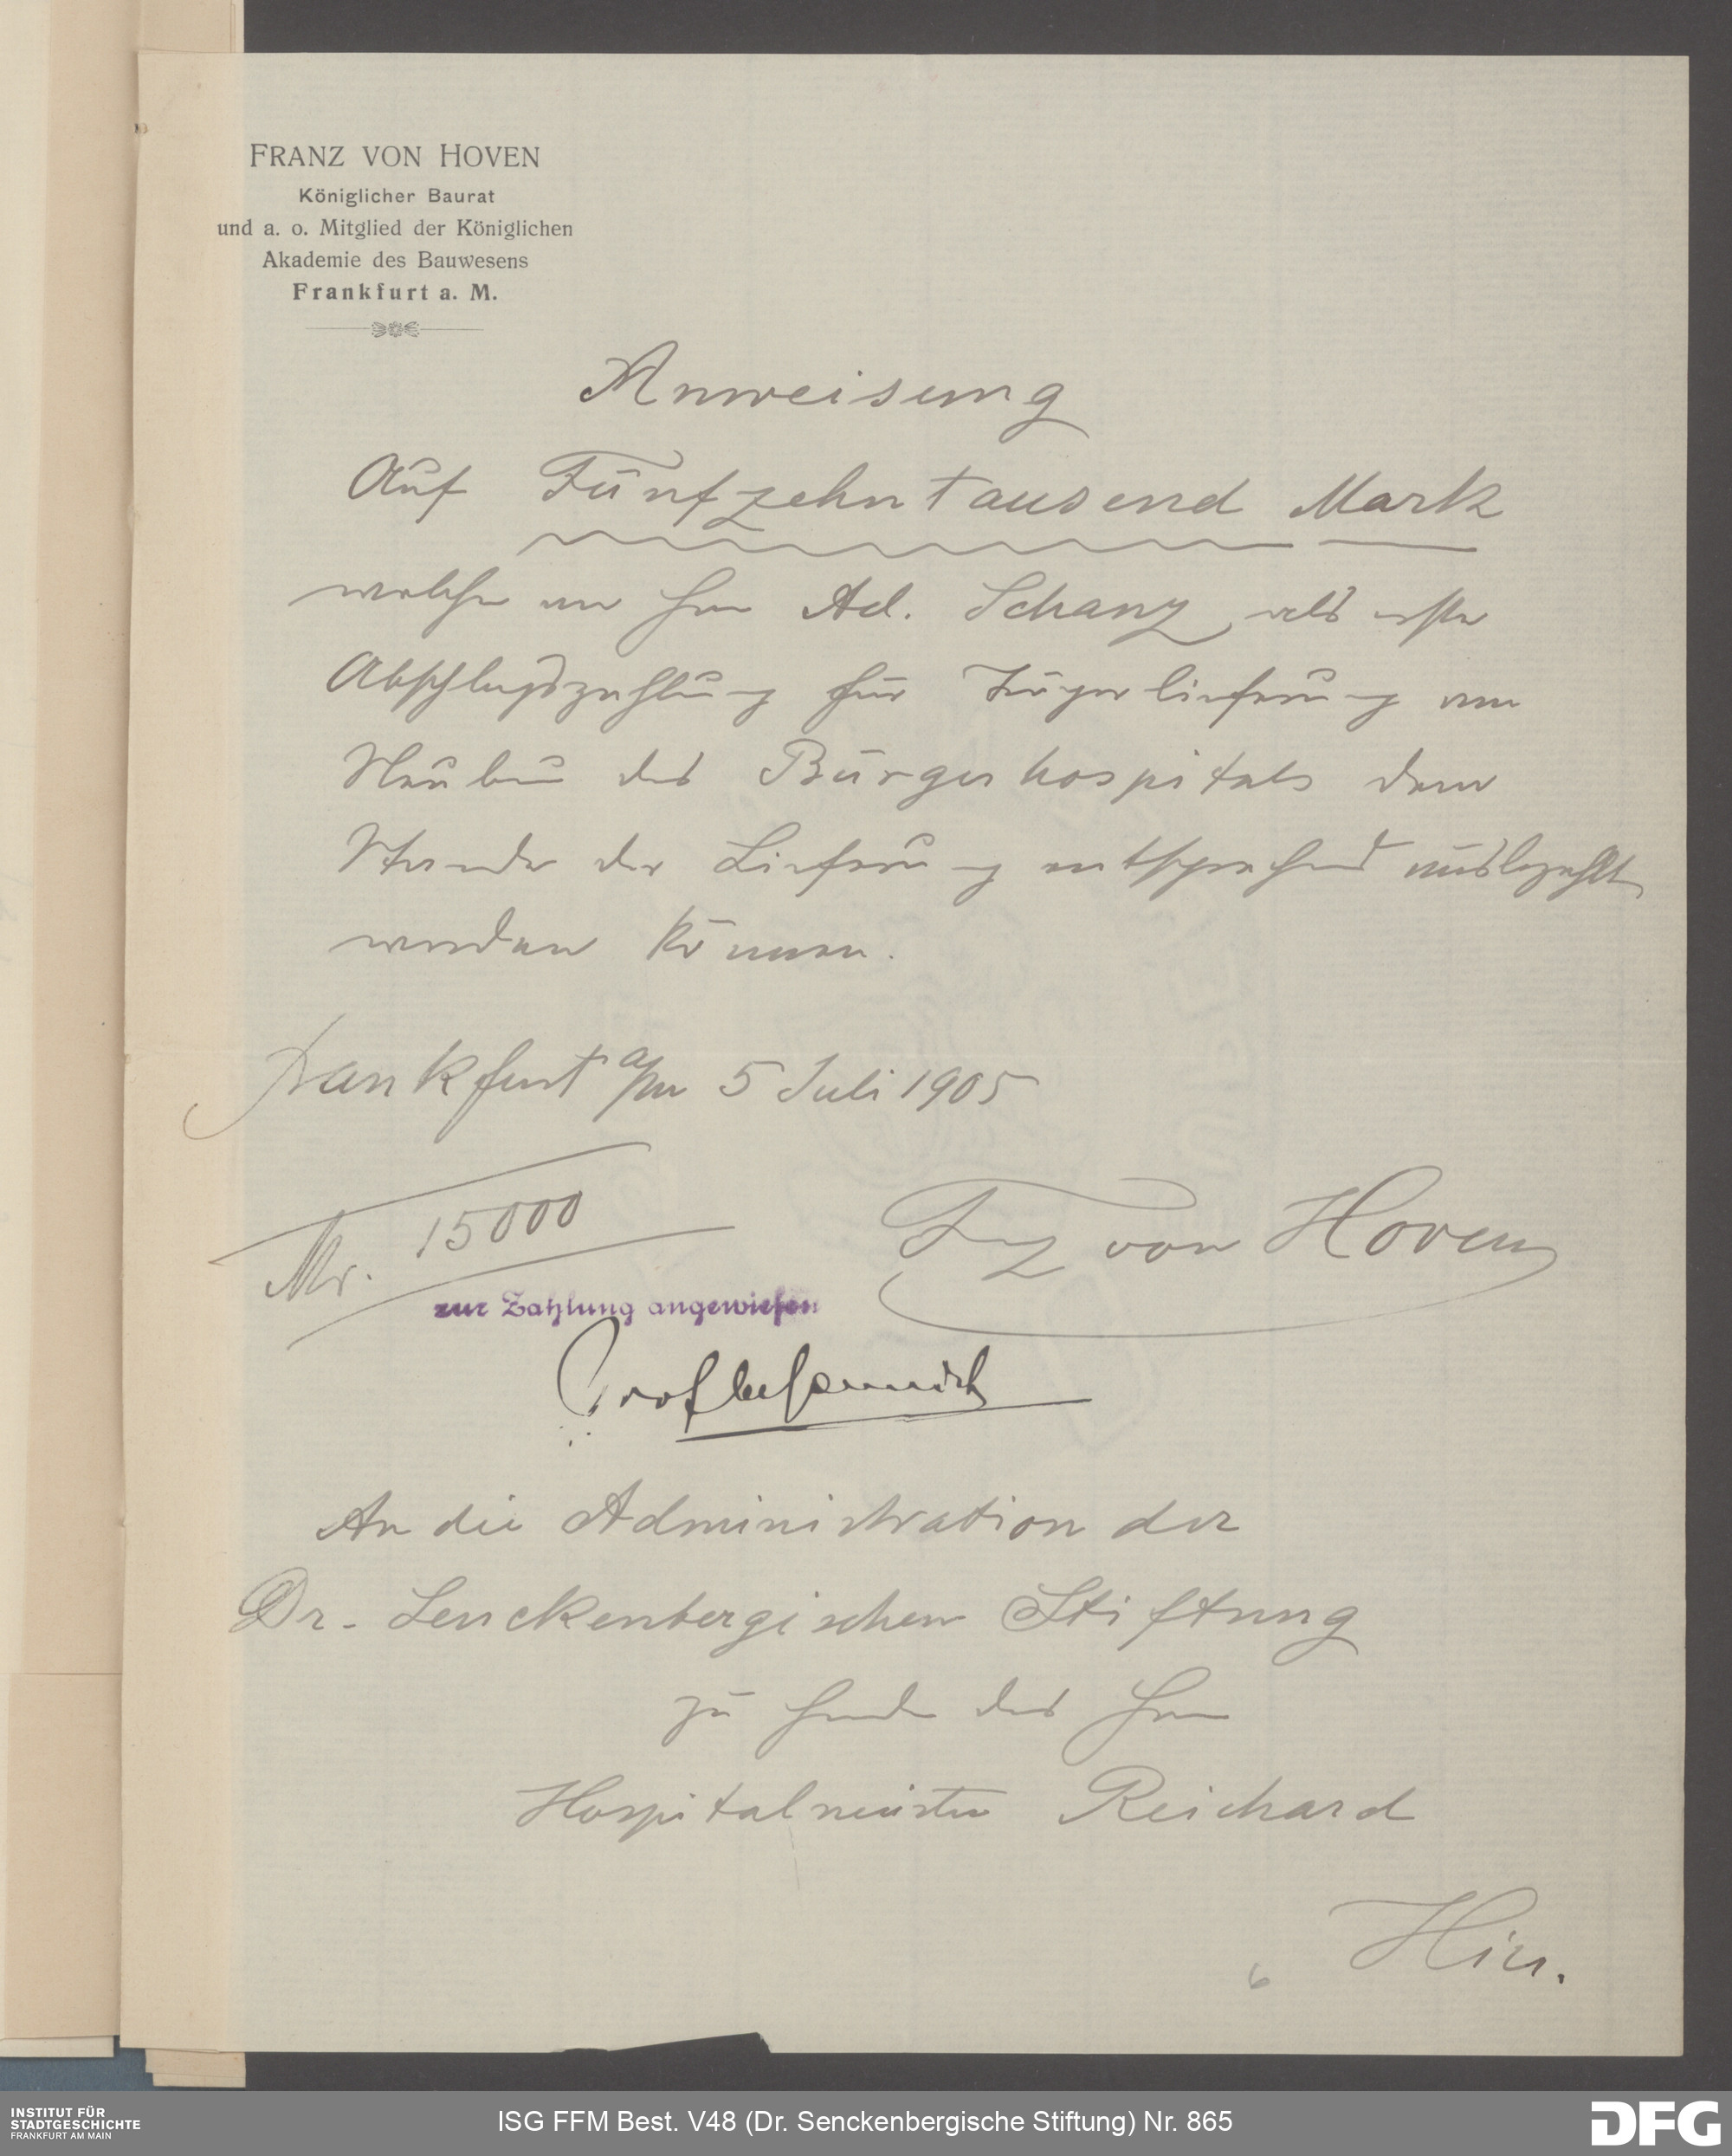 FRANZ VON HOVEN
Königlicher Baurat
und a. o. Mitglied der Königlichen
Akademie des Bauwesens
Frankfurt a. M.
Anweisung
Auf Fünfzehntausend Mark
welche an Herrn Ad. Schanz als erste
Abschlagszahlung für Trägerlieferung am
Neubau des Bürgerhospitals dem
Stande der Lieferung entsprechend ausbezahlt
werden können.
Frankfurt a/m 5 Juli 1905
Mk. 15000
Frz von Hoven
zur Zahlung angewiesen
Prof
An die Administration der
Dr. Senckenbergischen Stiftung
zu Hände des Herrn
Hospitalmeister Reichard
Hier.
6
INSTITUT FÜR
STADTGESCHICHTE
FRANKFURT AM MAIN
ISG FFM Best. V48 (Dr. Senckenbergische Stiftung) Nr. 865
DFG